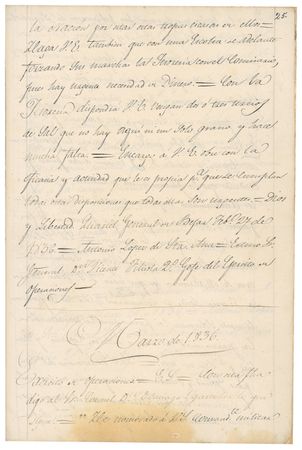 25.
la ocacion por mas otras tropas
Haga V.E. tambien que con una Escolta se adelante
forzando sus marchas la Tesoreria con el Comisario,
pues hay suma necesidad de Dinero. = Con la
Tesoreria dispondrá V.E. vengan dos ó tres tercios
de Sal que no hay aqui ni un solo grano y hace
mucha falta. = Encargo á V.E. obre con la
eficacia y actividad que le es propia pª que se cumplan
todas estas disposiciones que todas ellas son urgentes. = Dios
y Libertad Cuartel General en Bejar Febº 27 de
1836. = Antonio Lopez de Stª Ana = Exсmo Sr.
General Dn Vicente Filisola 2º Gefe del Ejército de
operaciones =
Marzo de 1836.
Ejército de operaciones = E.S. = Con esta fha
digo al Sr. General Dn Domingo Ugartechea lo que
sigue. =